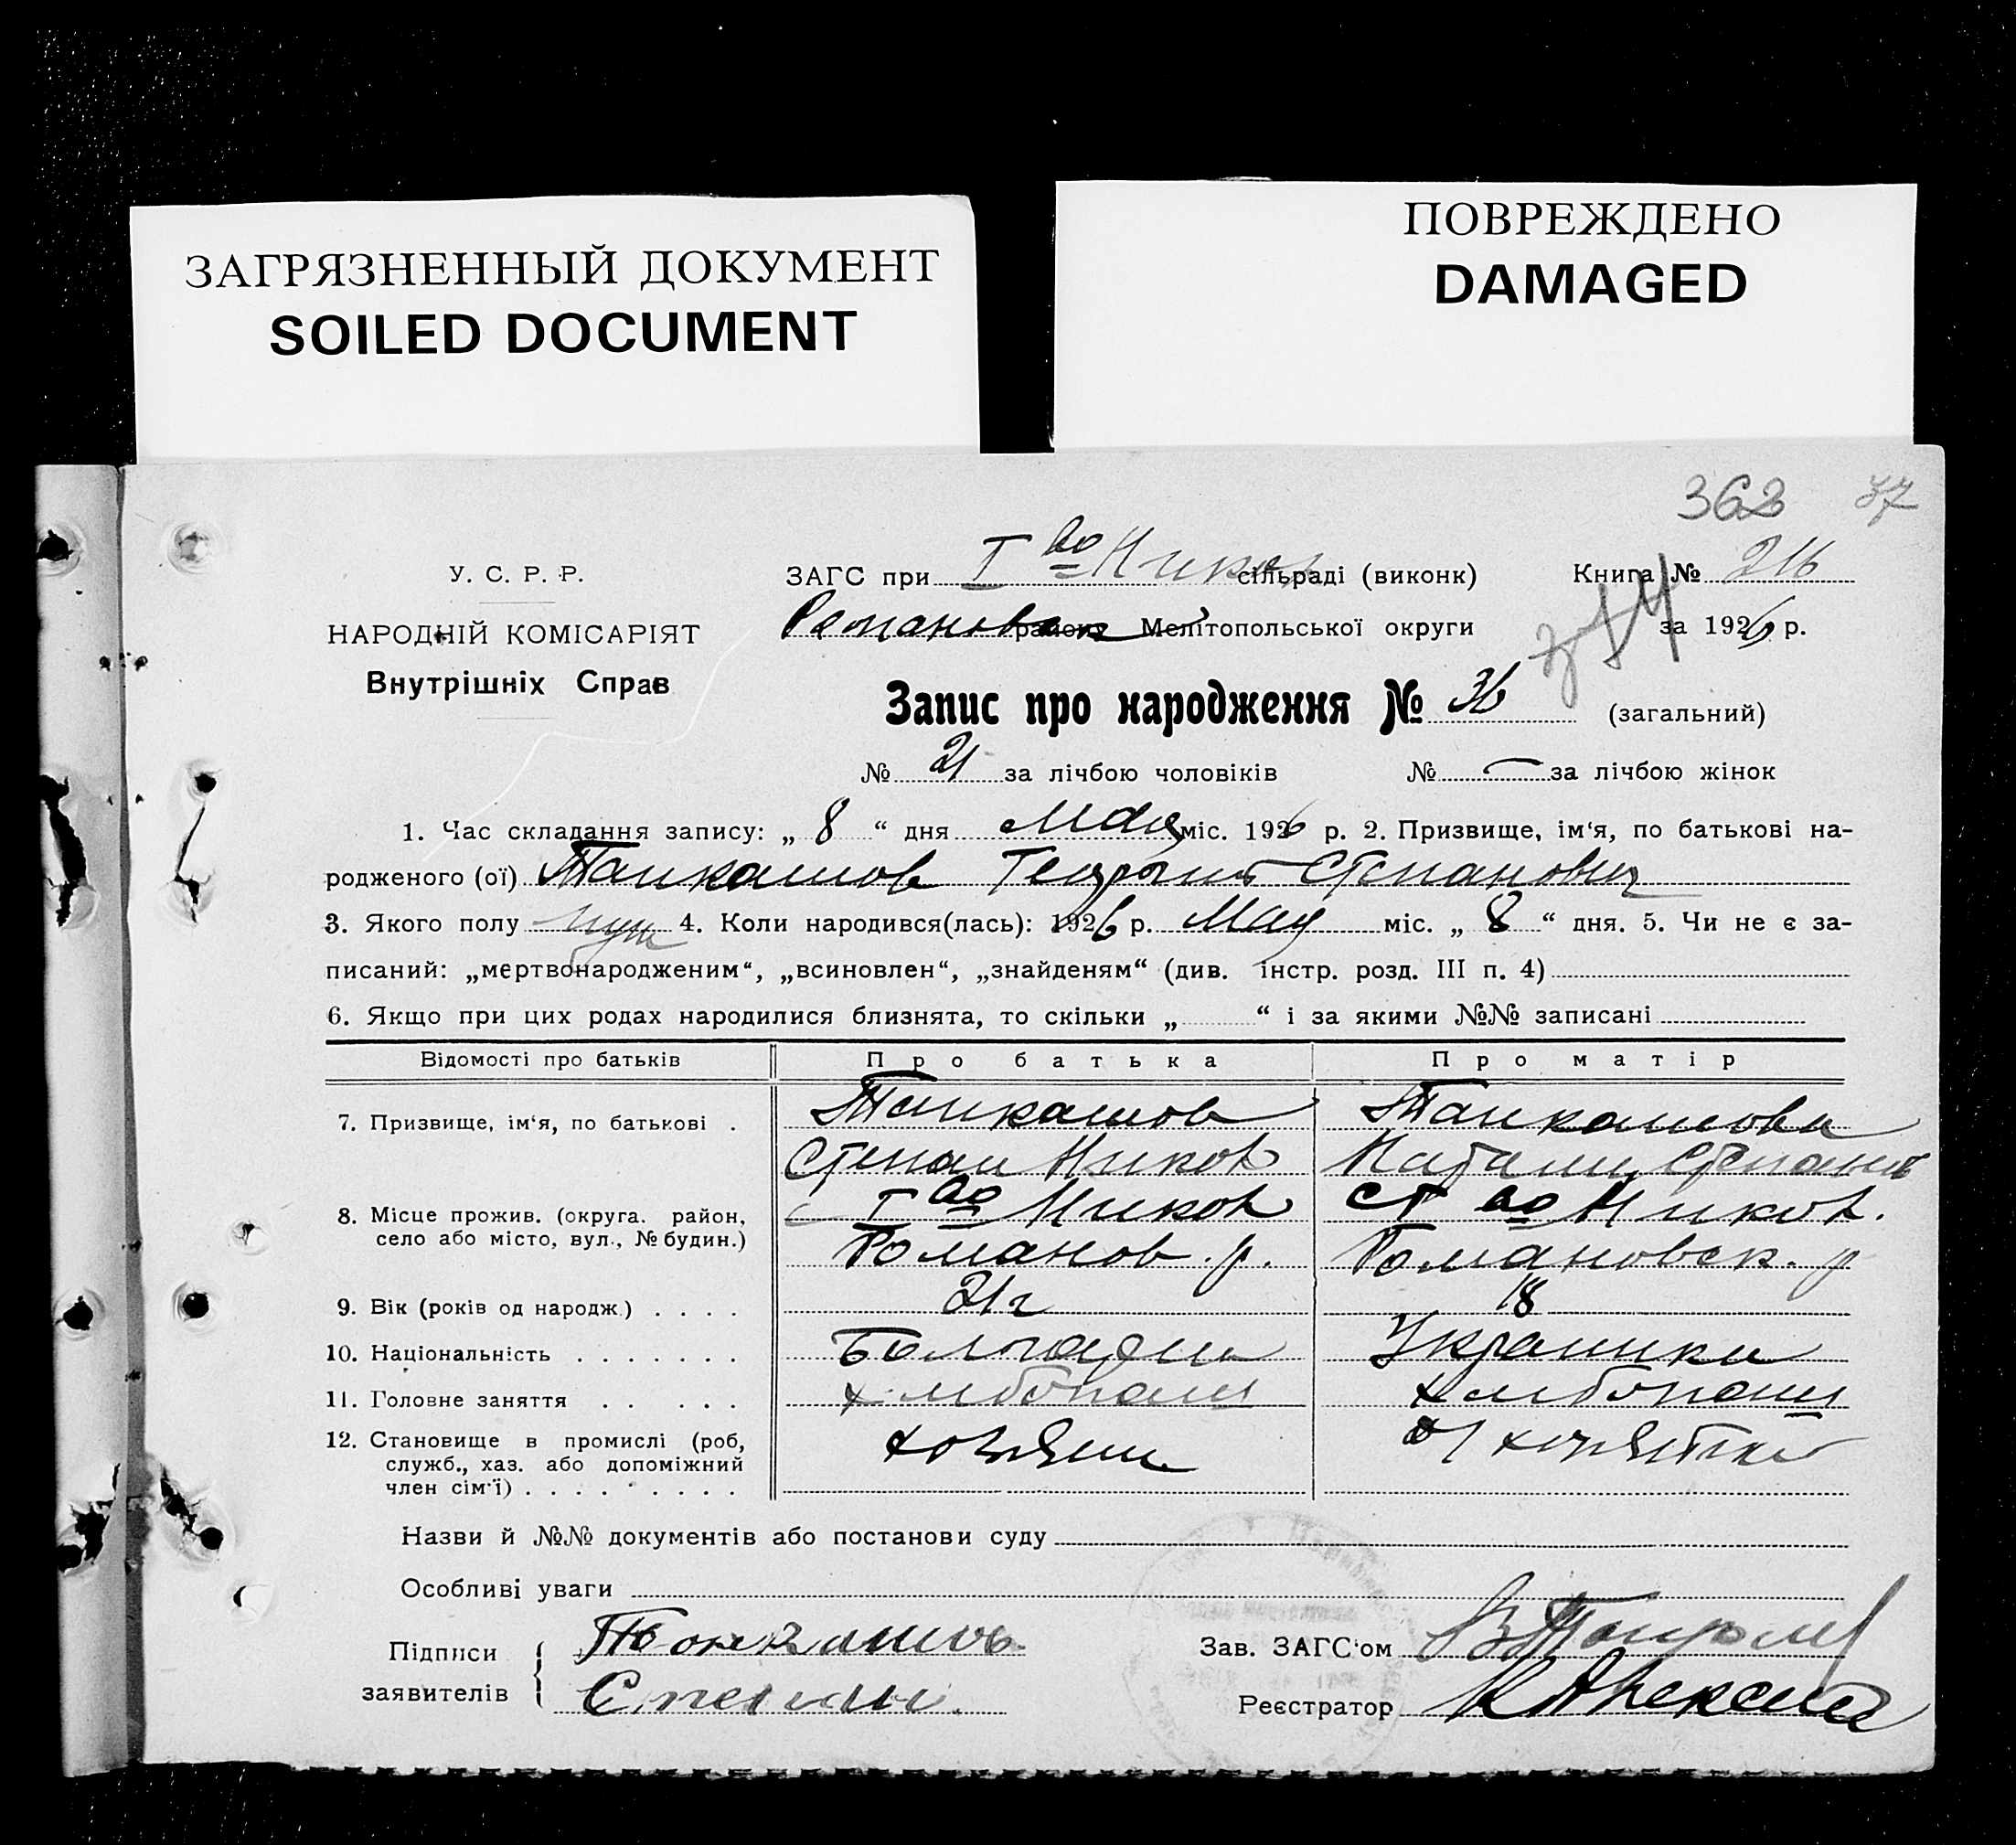 ЗАГРЯЗНЕННЫЙ ДОКУМЕНТ
SOILED DOCUMENT
ПОВРЕЖДЕНО
DAMAGED
362 37
У. С. Р. Р.
НАРОДНІЙ КОМІСАРІЯТ
Внутрішніх Справ
ЗАГС при I во Никол сільраді (виконк) Книга № 216
Романовск района Мелітопольської округи за 1926 р.
Запис про народження № 36 (загальний)
№ 21 за лічбою чоловіків № — за лічбою жінок
1. Час складання запису: „ 8 “ дня Мая міс. 1926 р. 2. Призвище, ім‘я, по батькові на-
родженого (ої) Танкашов Георгий Степанович
3. Якого полу муж 4. Коли народився(лась): 1926 р. Мая міс. „ 8 “ дня. 5. Чи не є за-
писаний: „мертвонародженим“, „всиновлен“, „знайденям“ (див. інстр. розд. III п. 4)
6. Якщо при цих родах народилися близнята, то скільки „ “ і за якими №№ записані
Відомості про батьків Про батька Про матір
7. Призвище, ім‘я, по батькові . Танкашов Танкашова
Степан Никол Натали Степанов
8. Місце прожив. (округа. район, I во Никол во Никол.
село або місто, вул., № будин.) Романов. р. Романовск. р
9. Вік (років од народж.) . . . . 21 г 18
10. Національність . . . . . . . Болгарин Украинка
11. Головне заняття . . . . . хлебопаш хлебопаш
12. Становище в промислі (роб, хозяин
служб., хаз. або допоміжний
член сім‘ї) . . . . . . . . .
Назви й №№ документів або постанови суду
Особливі уваги
Підписи Танкашов Зав. ЗАГС‘ом
заявителів Степан. Реєстратор